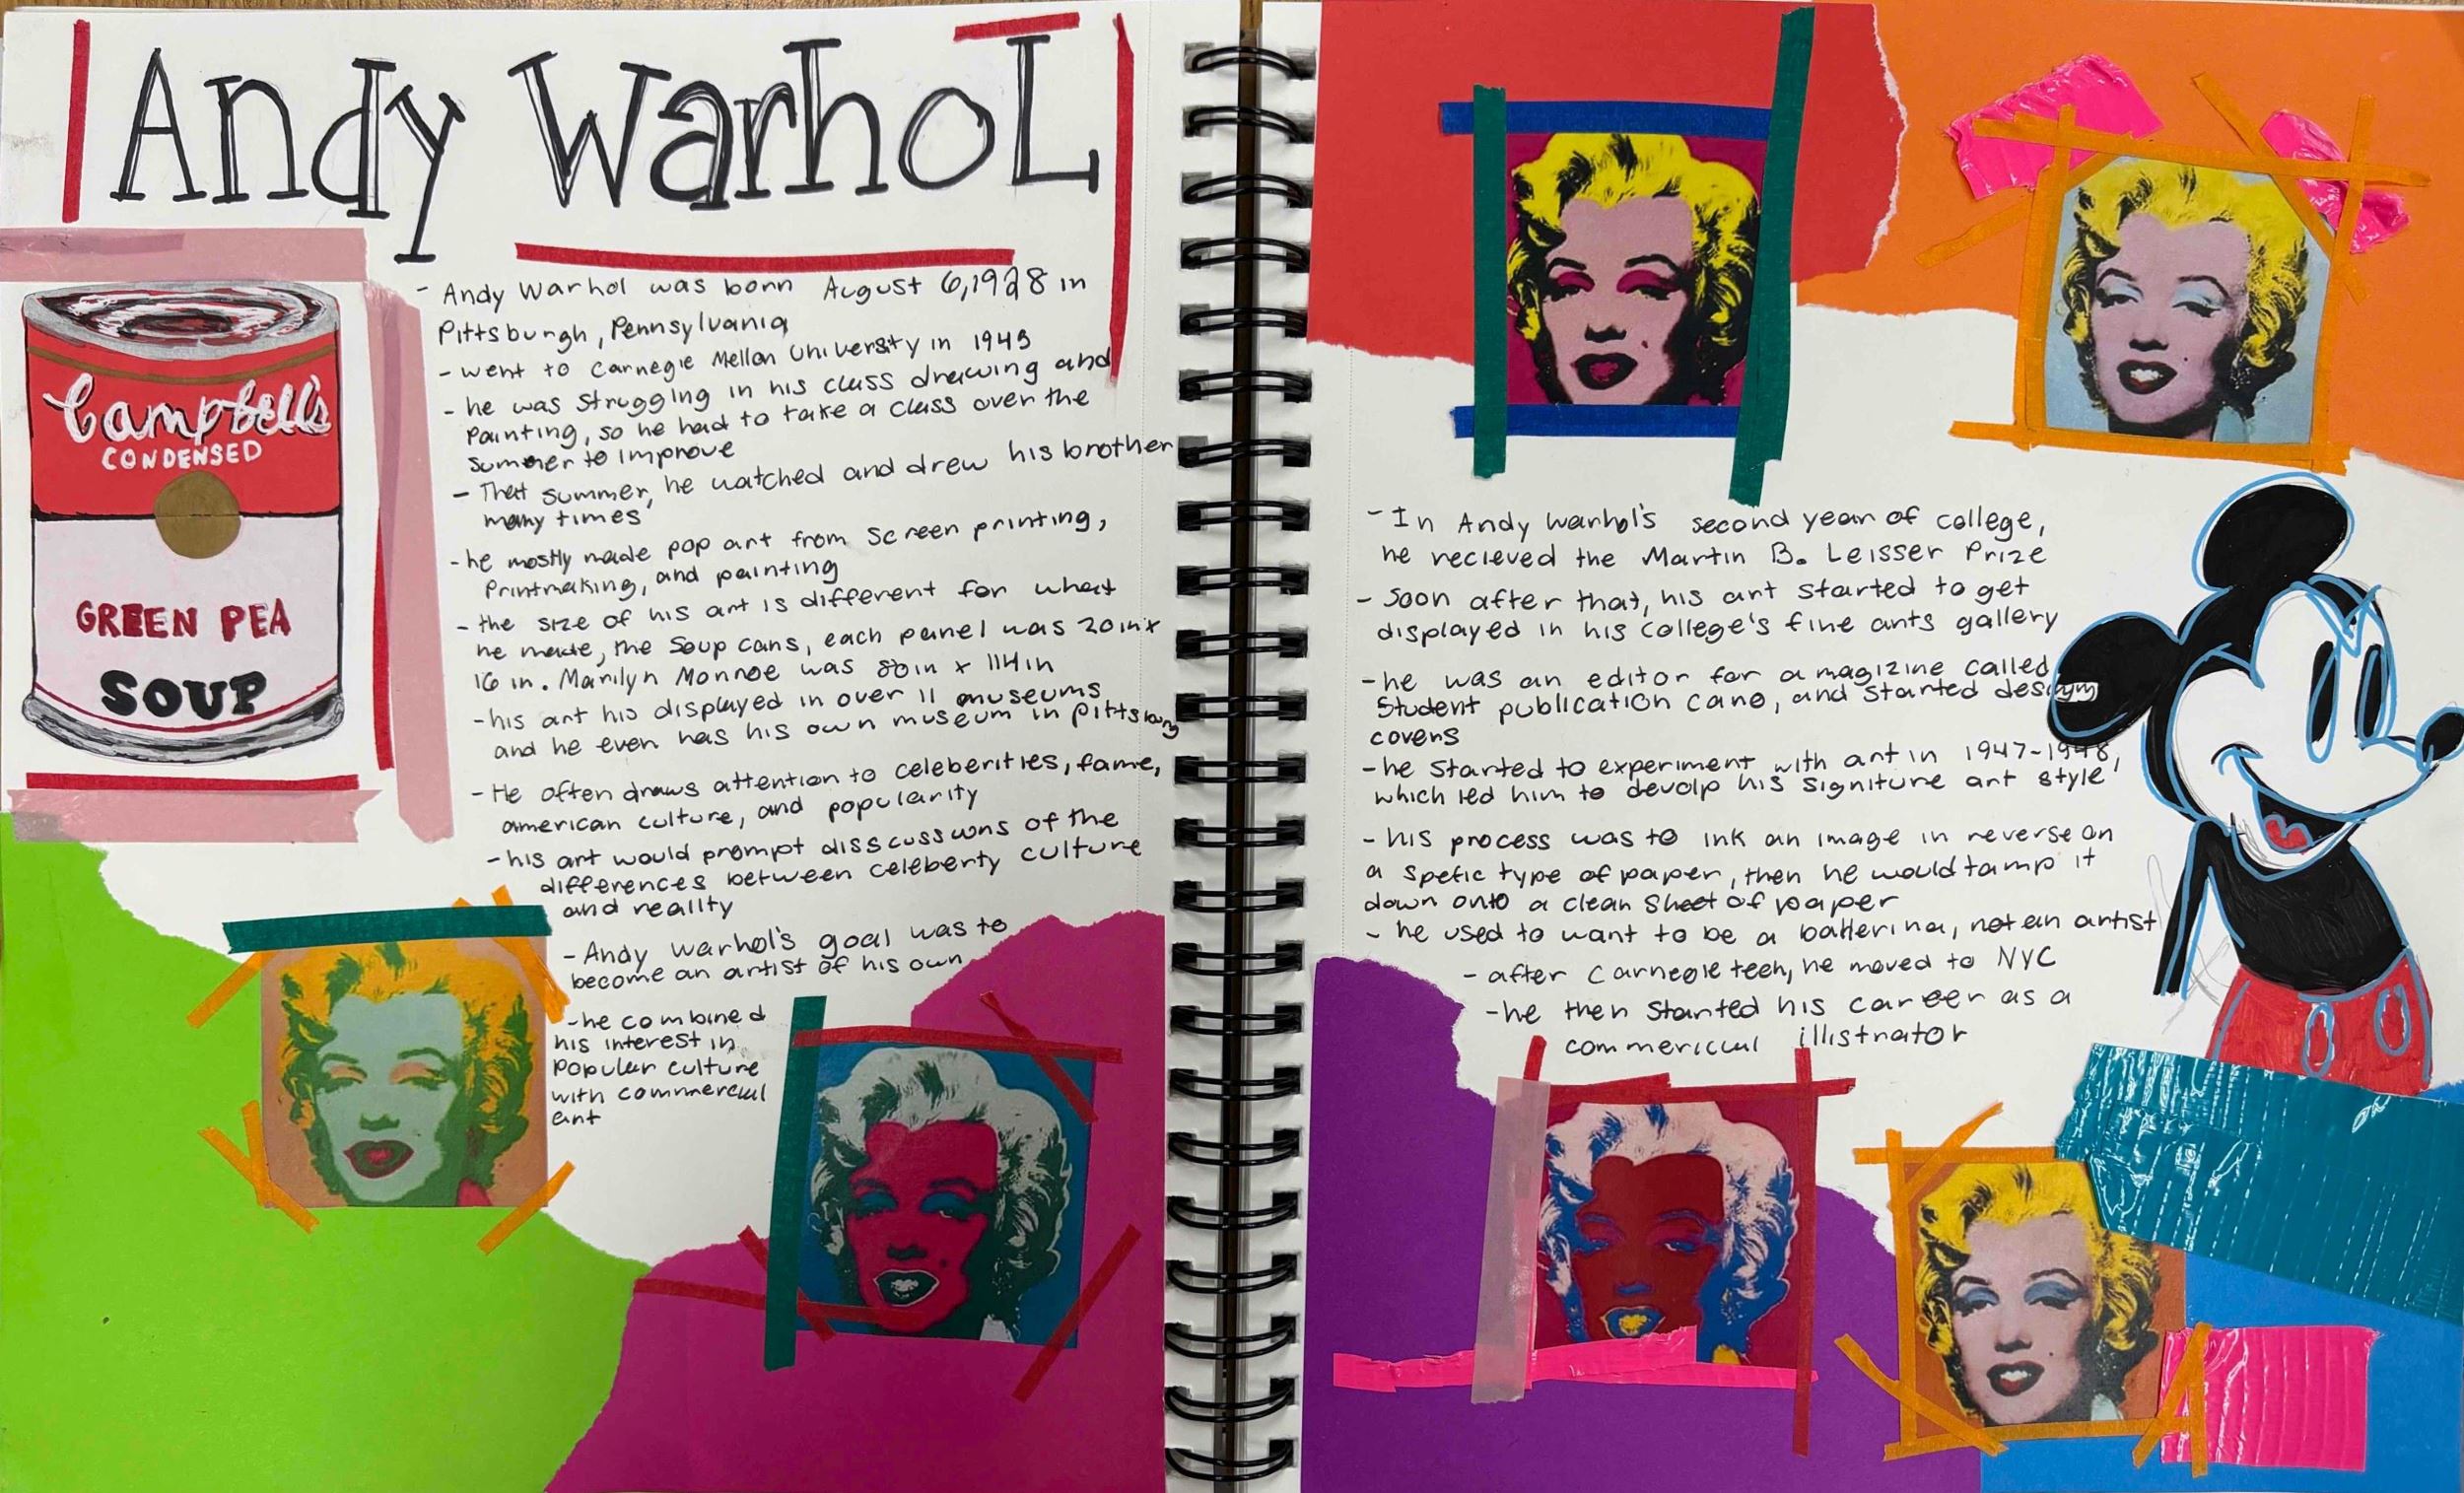 Andy Warhol
- Andy Warhol was born August 6,1928 in
Pittsburgh, Pennsylvania
- went to Carnegie Mellon University in 1945
- he was struggling in his class drawing and
painting, so he had to take a class over the
summer to improve
- That summer, he watched and drew his brother
many times
- he mostly made pop art from screen printing,
printmaking, and painting
- the size of his art is different for what
he made, the soup cans, each panel was 20in x
16 in. Marilyn Monroe was 80in x 114in
- his art his displayed in over 11 museums
and he even has his own museum in Pittsburg
- He often draws attention to celeberities, fame,
american culture, and popularity
- his art would prompt disscussions of the
differences between celeberty culture
and reality
- Andy Warhol's goal was to
become an artist of his own
- he combined
his interest in
popular culture
with commercial
art
Campbell's
CONDENSED
GREEN PEA
SOUP
- In Andy Warhol's second year of college,
he recieved the Martin B. Leisser Prize
- soon after that, his art started to get
displayed in his college's fine arts gallery
- he was an editor for a magizine called
Student publication cano, and started design
covers
- he started to experiment with art in 1947-1948,
which led him to devolp his signiture art style
- his process was to ink an image in reverse on
a spefic type of paper, then he would tamp it
down onto a clean sheet of paper
- he used to want to be a ballerina, not an artist
- after Carnegie tech, he moved to NYC
- he then started his career as a
commericial illistrator